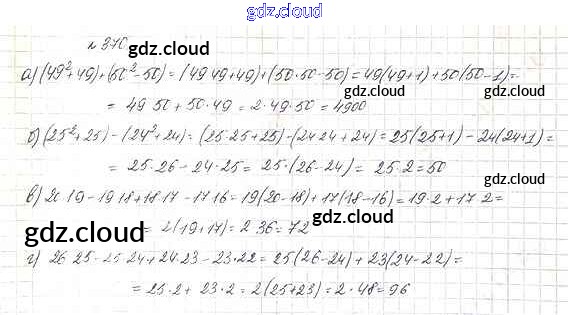 gdz.cloud
№ 370
gdz.cloud
а) (49²+49)+(50²-50)=(49·49+49)+(50·50-50)=49(49+1)+50(50-1)=
gdz.cloud gdz.cloud
= 49·50+50·49=2·49·50=4900
б) (25²+25)-(24²+24)=(25·25+25)-(24·24+24)=25(25+1)-24(24+1)=
= 25·26-24·25=25·(26-24)=25·2=50
gdz.cloud
в) 20·19-19·18+18·17-17·16=19(20-18)+17(18-16)=19·2+17·2=
gdz.cloud
= 2(19+17)=2·36=72
gdz.cloud
г) 26·25-25·24+24·23-23·22=25(26-24)+23(24-22)=
= 25·2+23·2=2(25+23)=2·48=96
gdz.cloud